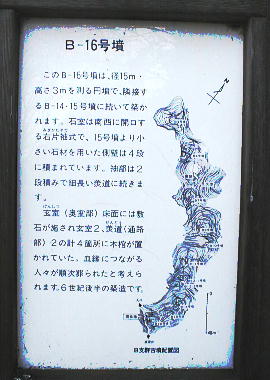 B-16号墳
このB-16号墳は、径15m・
高さ3mを測る円墳で、隣接す
るB-14・15号墳に続いて築か
れます。石室は南西に開口す
る右片袖式で、15号墳より小
さい石材を用いた側壁は4段
に積まれています。袖部は2
段積みで細長い羨道に続きま
す。
玄室(奥室部)床面には敷
石が施され玄室2、羨道(通路
部)2の計4箇所に木棺が置
かれていた。血縁につながる
人々が順次葬られたと考えら
れます。6世紀後半の築造です。
B支群古墳配置図